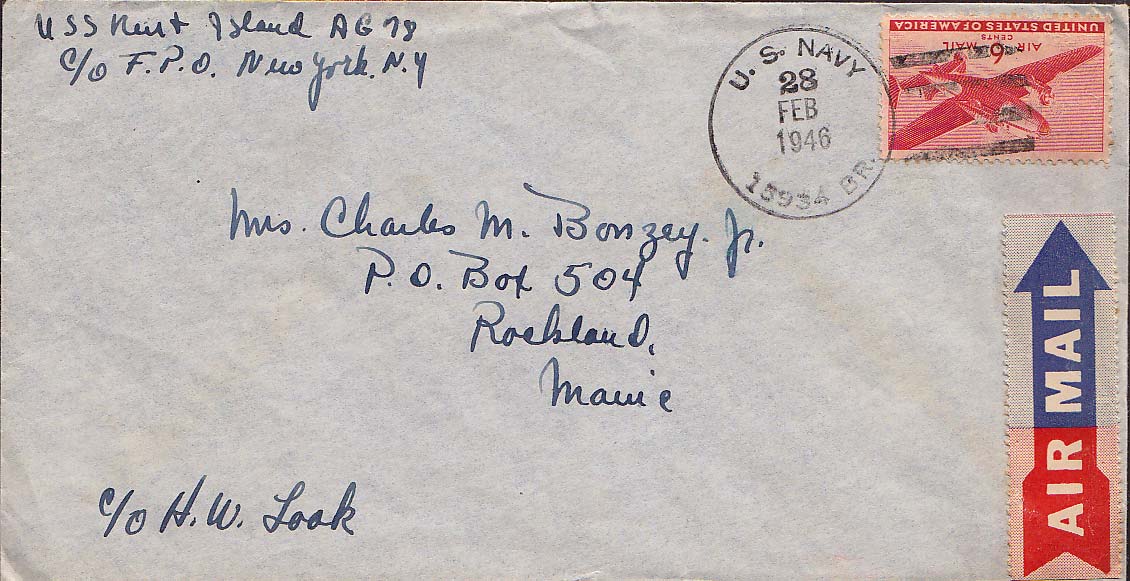 USS Kent Island AG 78
c/o F.P.O. New York. N.Y
U. S. NAVY
28
FEB
1946
15934 BR.
UNITED STATES OF AMERICA
CENTS
AIR MAIL
6
Mrs. Charles M. Bonzey. Jr.
P.O. Box 504
Rockland,
Maine
c/o H.W. Look
AIR MAIL